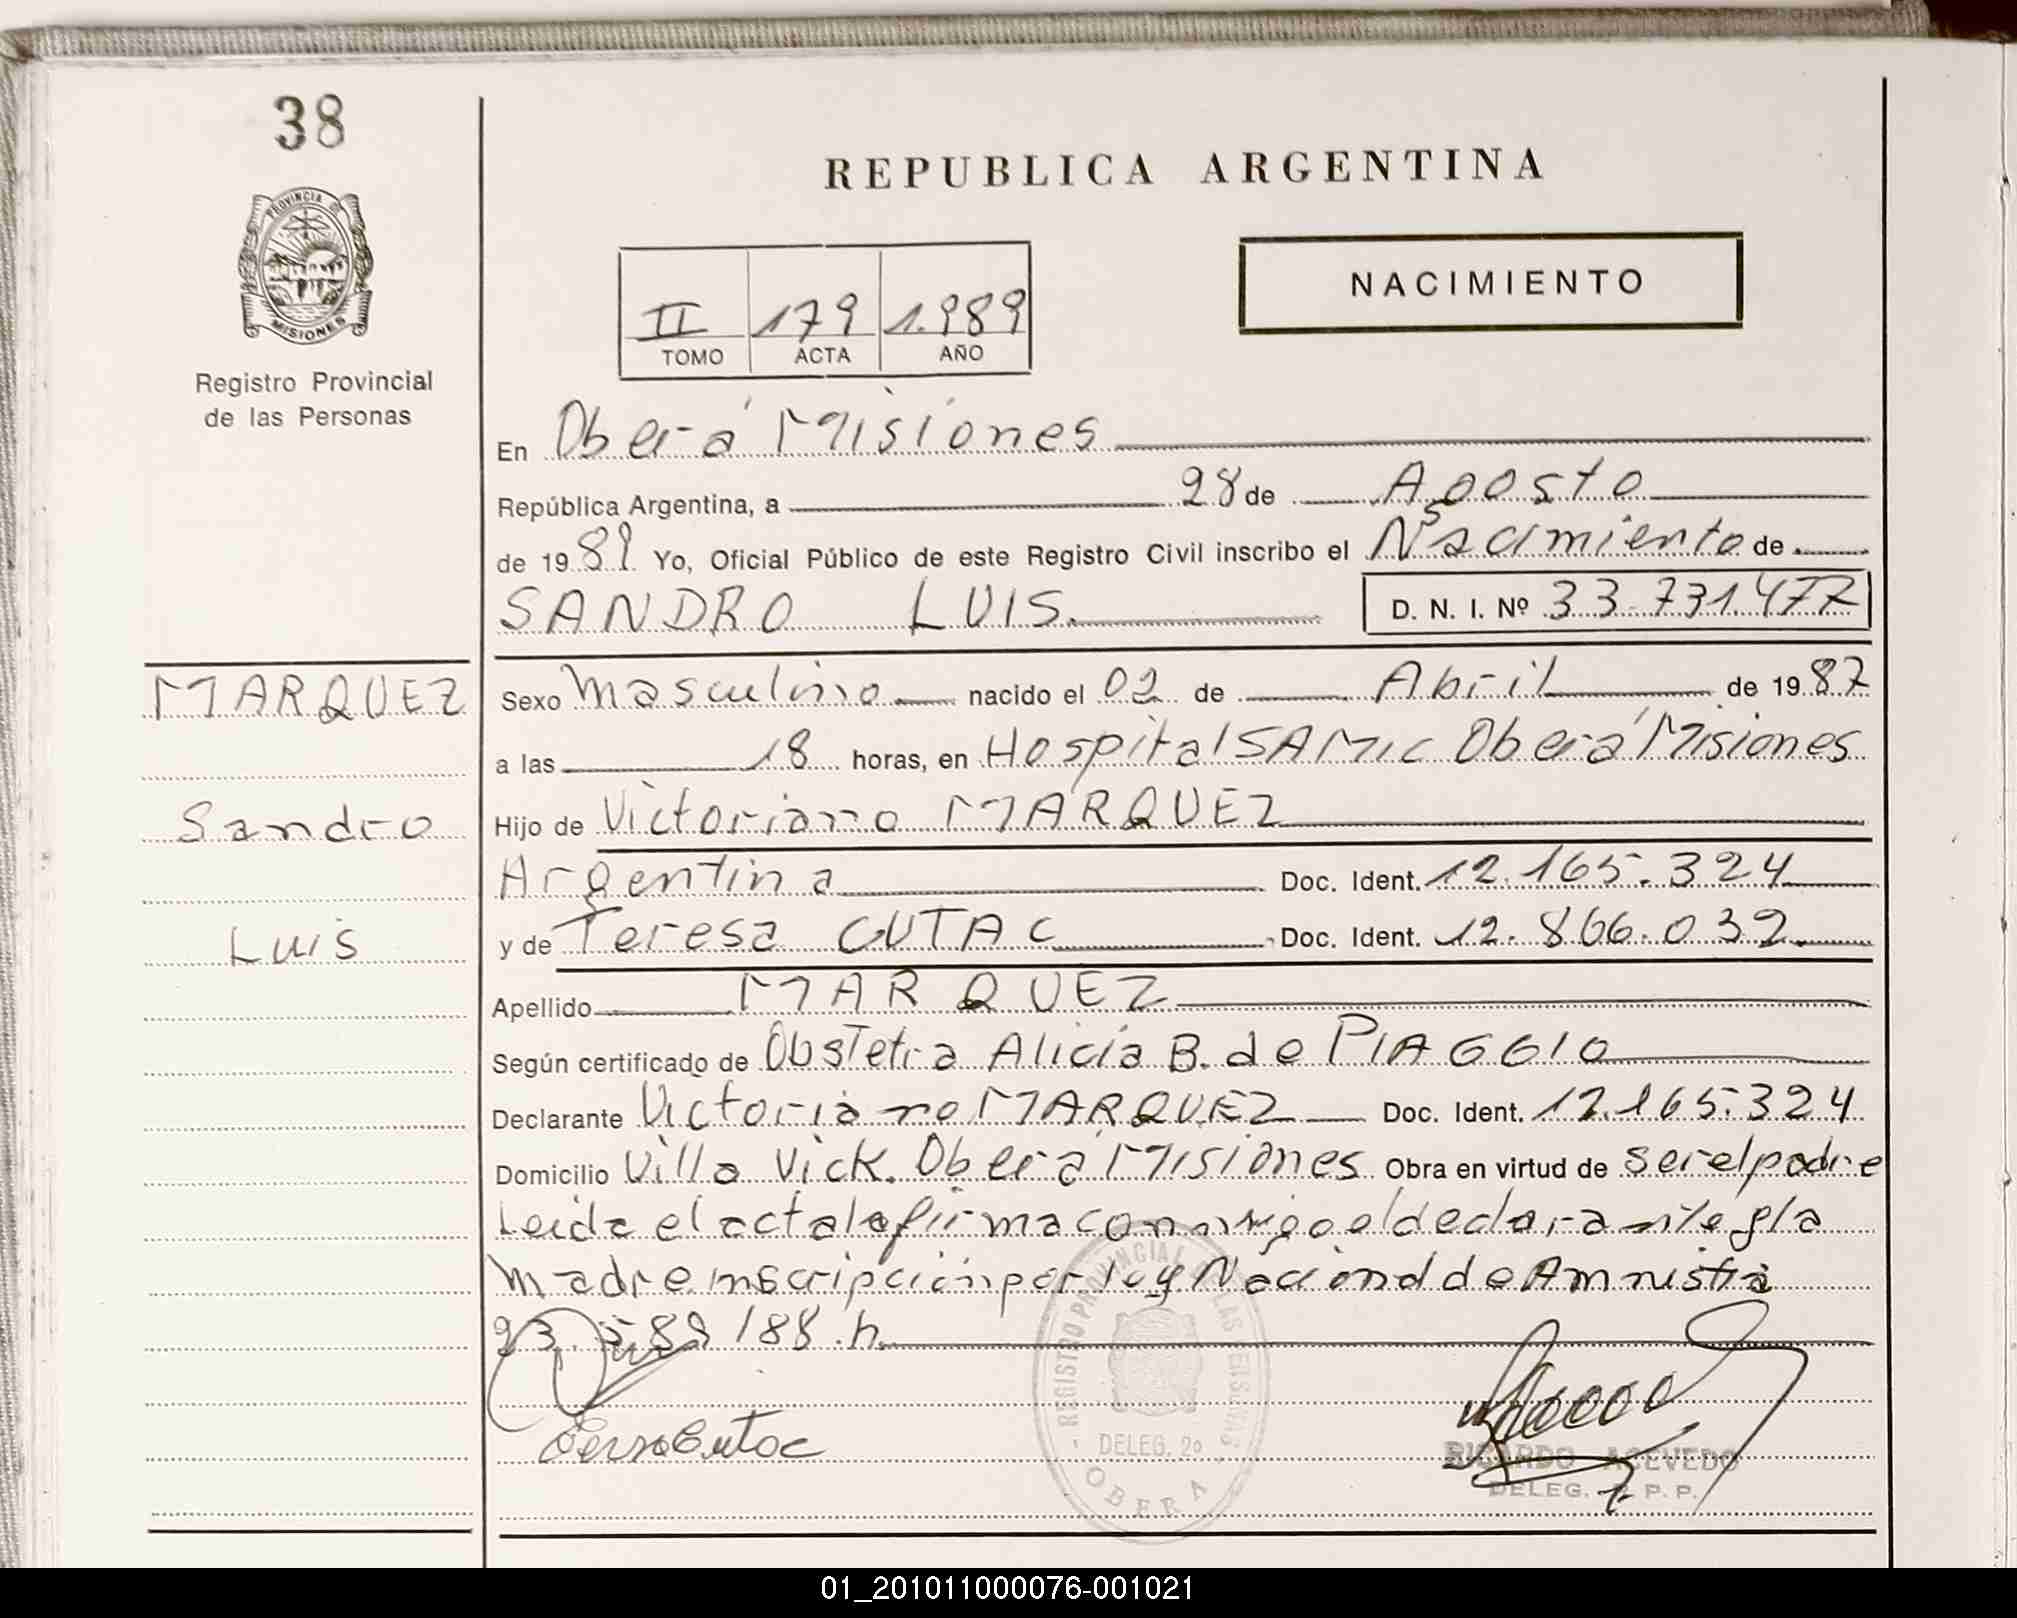 38
REPUBLICA ARGENTINA
PROVINCIA DE
MISIONES
Registro Provincial
de las Personas
NACIMIENTO
II 179 1.989
TOMO ACTA AÑO
En Oberá Misiones
República Argentina, a 28 de Agosto
de 1989 Yo, Oficial Público de este Registro Civil inscribo el Nacimiento de
SANDRO LUIS. D. N. I. Nº 33.731.477
MARQUEZ
Sandro
Luis
Sexo Masculino nacido el 02 de Abril de 1987
a las 18 horas, en Hospital SAMIC Oberá Misiones
Hijo de Victoriano MARQUEZ
Argentina Doc. Ident. 12.165.324
y de Teresa CUTAC Doc. Ident. 12.866.032.
Apellido MARQUEZ
Según certificado de Obstetra Alicia B. de PIAGGIO
Declarante Victoriano MARQUEZ Doc. Ident. 12.165.324
Domicilio Villa Vick. Oberá Misiones Obra en virtud de ser el padre
Leida el acta la firma conmigo el declarante y la
Madre inscripción por ley Nacional de Amnistia
23.589/88.n.
REGISTRO PROVINCIAL DE LAS PERSONAS
DELEG. 20
OBERA
RICARDO ACEVEDO
DELEG. R. P. P.
01_201011000076-001021